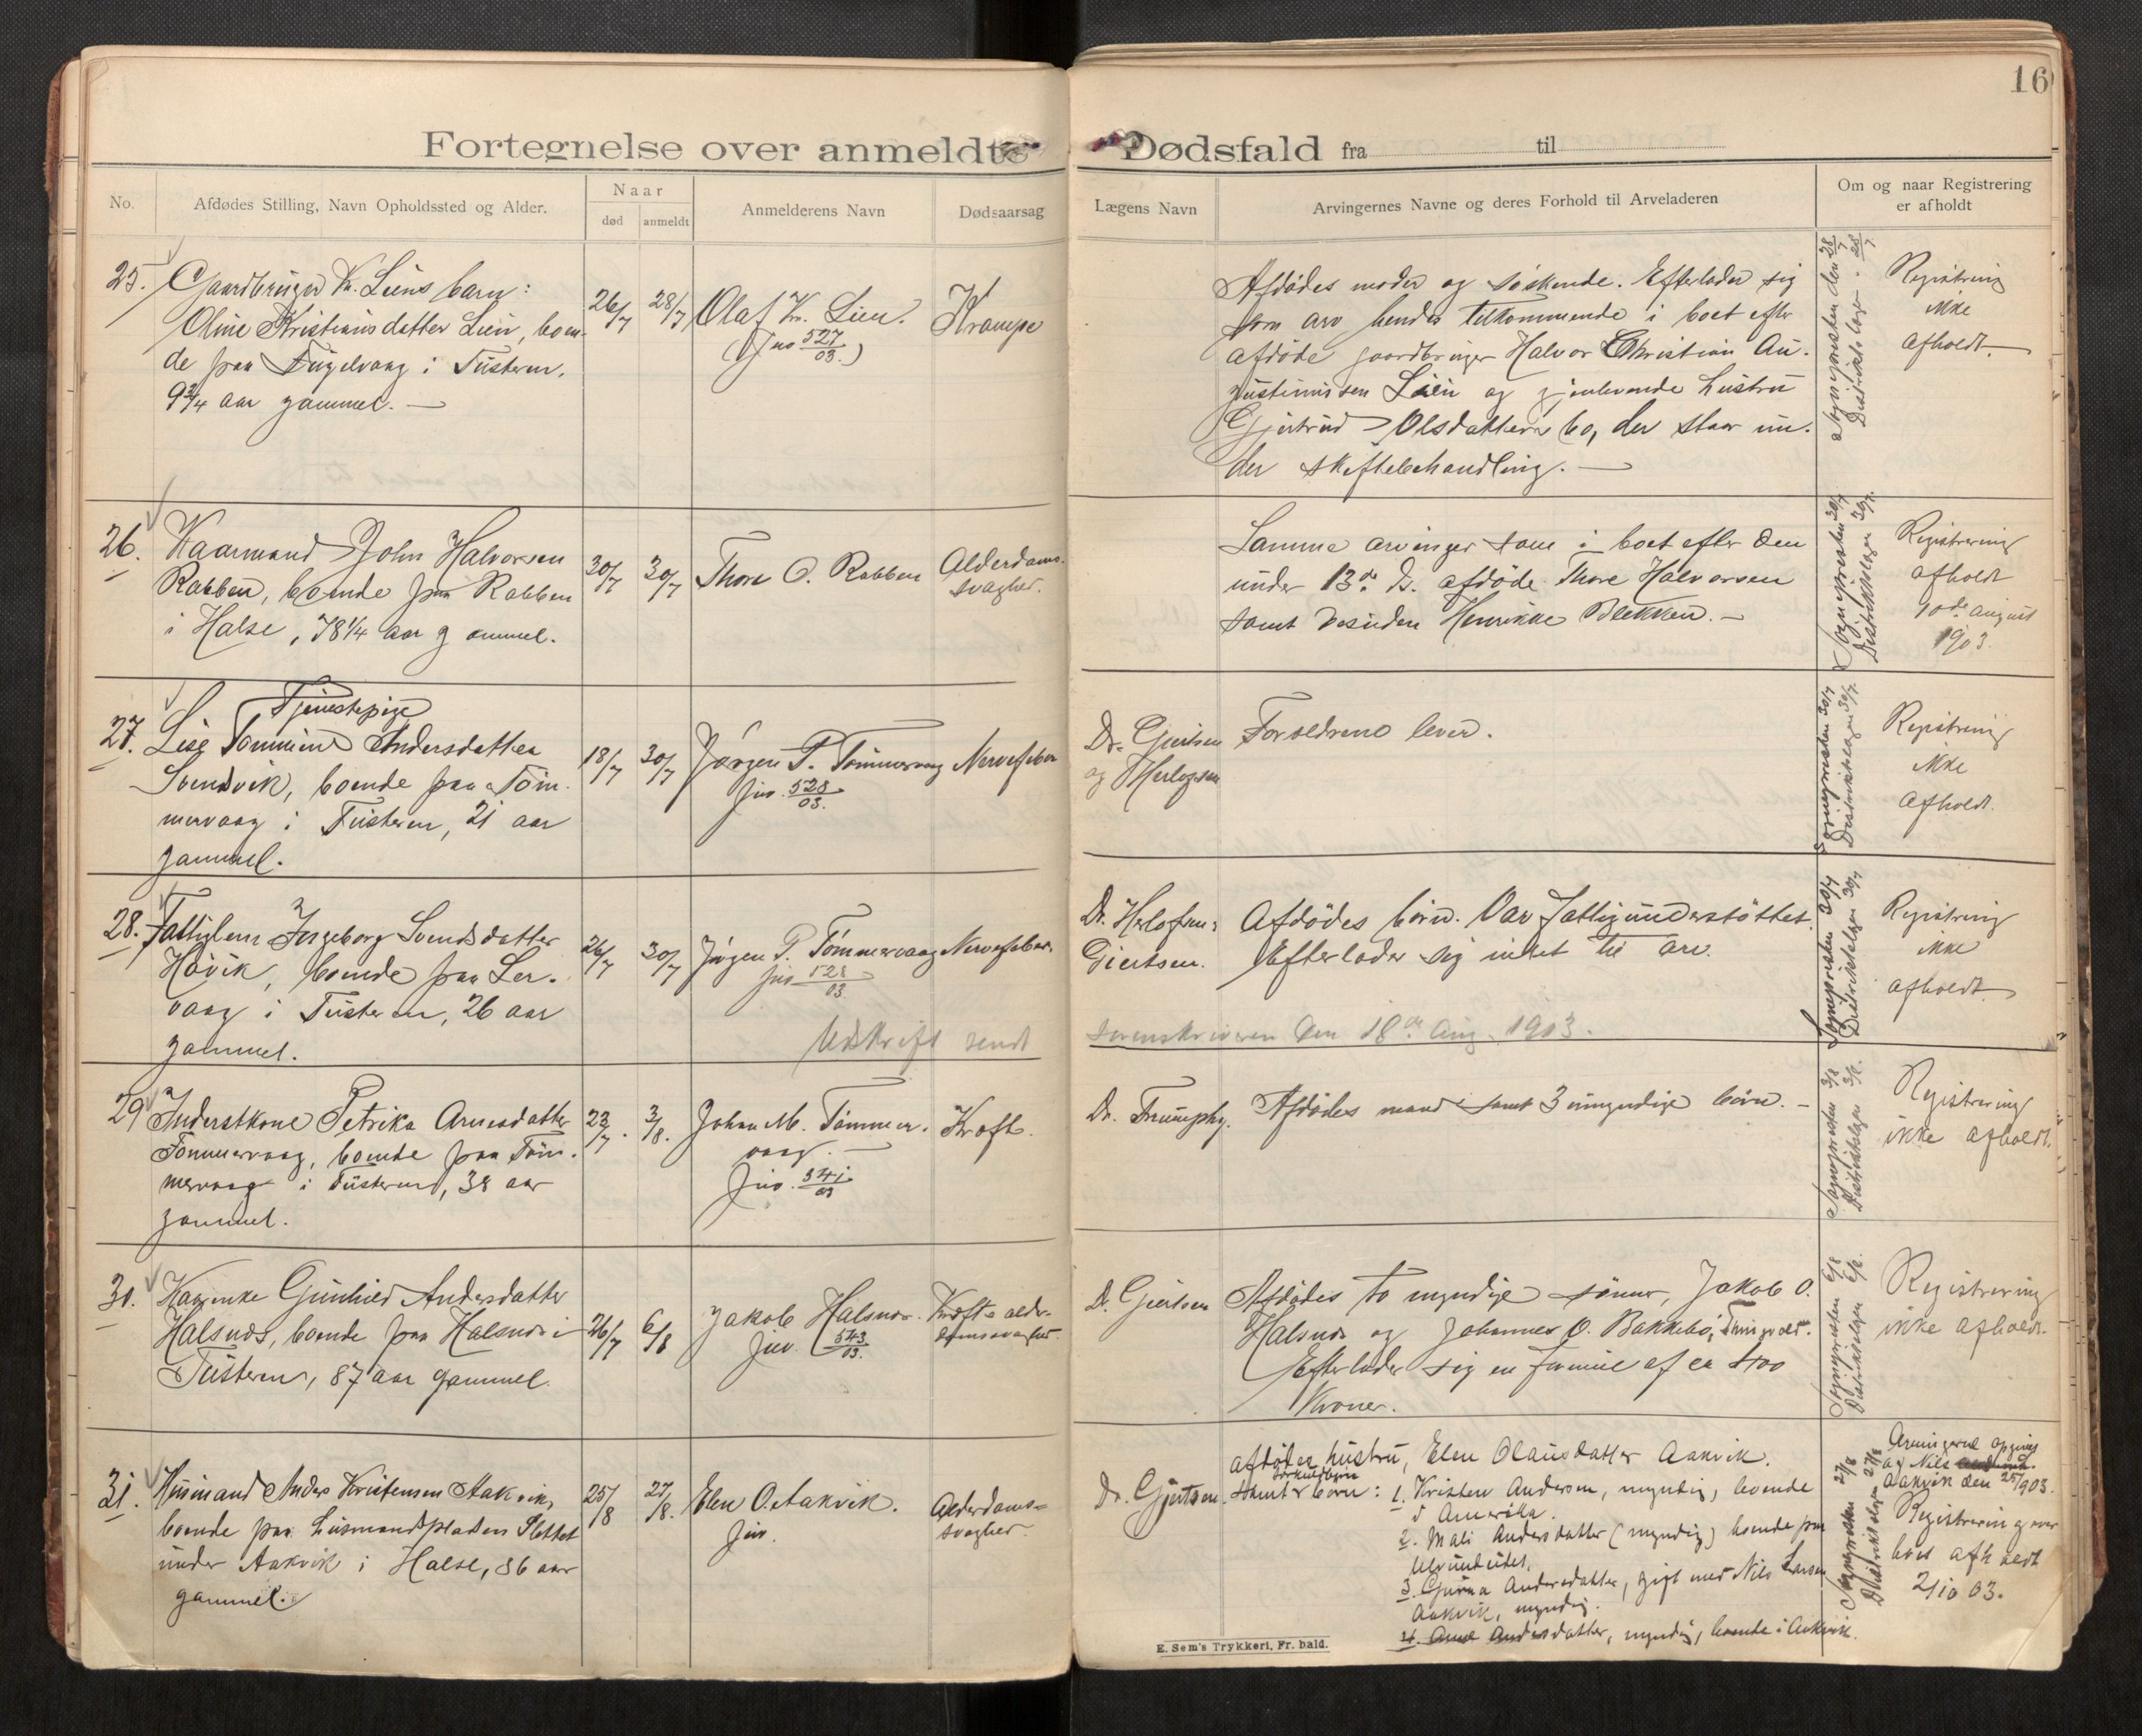 16
Fortegnelse over anmeldte Dødsfald fra til
No.
Afdødes Stilling, Navn Opholdssted og Alder.
Naar
død
anmeldt
Anmelderens Navn
Dødsaarsag
Lægens Navn
Arvingernes Navne og deres Forhold til Arveladeren
Om og naar Registrering
er afholdt
25.
Gaardbruger Kr. Liens barn:
Oline Kristiansdatter Lien, boen-
de paa Fugelvaag i Tusteren.
9 3/4 aar gammel. —
26/7
28/7
Olaf Kr. Lien.
(Jno 527/03.)
Krampe
Afdødes moder og søskende. Efterlader sig
som arv hendes tilkommende i boet efter
afdøde gaardbruger Halvor Christian Au-
gustinussen Lien og gjenlevende hustru
Gjertrud Olsdatters bo, der staar un-
der skiftebehandling. —
Sognepresten den 28/7
Distriktslægen " 28/7
Registrering
ikke
afholdt. —
26.
Kaarmand John Halvorsen
Rabben, boende paa Rabben
i Halse, 78 1/4 aar gammel.
30/7
30/7
Thore O. Rabben
Alderdoms-
svaghed.
Samme arvinger som i boet efter den
under 13de ds. afdøde Thore Halvorsen
samt desuden Henrikke Blekken. —
Sognepresten 30/7
Distriktslægen 30/7.
Registrering
afholdt
10de august
1903.
27.
Tjenestepige
Lise Andersdatter
Svendsvik, boende paa Töm-
mervaag i Tusteren, 21 aar
gammel.
18/7
30/7
Jørgen P. Tömmervaag
Jno. 528/03.
Nervefeber
Dr. Gjertsen
og Herlofsen
Forældrene lever.
Sognepresten 30/7
Distriktslægen 30/7.
Registrering
ikke
afholdt.
28.
Fattiglem Ingeborg Svendsdatter
Håvik, boende paa Ler-
vaag i Tusteren, 26 aar
gammel.
26/7
30/7
Jörgen P. Tömmervaag
Jno 528/03
Nervefeber.
Dr. Herlofsen,
Giertsen.
Afdödes börn. Var fattigunderstöttet.
Efterlader sig intet til arv.
Sognepresten 30/7
Distriktslægen 30/7
Registrering
ikke
afholdt
Udskrift sendt sorenskriveren den 18de Aug. 1903.
29
Inderstkone Petrika Arnesdatter
Tömmervaag, boende paa Töm-
mervaag i Tusteren, 38 aar
gammel.
23/7.
3/8.
Johan M. Tömmer-
vaag. —
Jno. 541/03
Kræft.
Dr.
Afdödes mand samt 3 umyndige börn. —
Sognepresten 3/8
Distriktslægen 3/8.
Registrering
ikke afholdt.
30.
Gunhild Andersdatter
Halsnæs, boende paa Halsnæs i
Tusteren, 87 aar gammel.
26/7
6/8
Jakob Halsnæs.
Jno. 543/03.
Kræft & alder-
domssvaghed.
Dr. Giertsen
Afdødes to myndige sönner, Jakob O.
Halsnæs og Johannes O. Bakkebö, Tingvold.
Efterlader sig en formue af ca 400
Kroner.
Sognepresten 6/8
Distriktslægen 6/8.
Registrering
ikke afholdt.
31.
Husmand Anders Kristensen Aakvik,
boende paa husmandspladsen Slettet
under Aakvik i Halse, 86 aar
gammel.
25/8
27/8.
Elen O. Aakvik.
Jno.
Alderdoms-
svaghed.
Dr. Gjertsen.
afdødes hustru, Elen Olausdatter Aakvik.
samt börn: 1. Kristen Andersen, myndig, boende
i Amerika.
2. Mali Andersdatter (myndig) boende paa
3. Gurina Andersdatter, gift med Nils Larsen
Aakvik, myndig.
4. Andersdatter, myndig, boende i Aakvik.
Sognepresten 27/8
Distriktslægen 27/8
Arvingerne opgivet
av Nils
Aakvik den 25/9 03.
Registrering over
boet afholdt
2/10 03.
E. Sem's Trykkeri, Fr. hald.